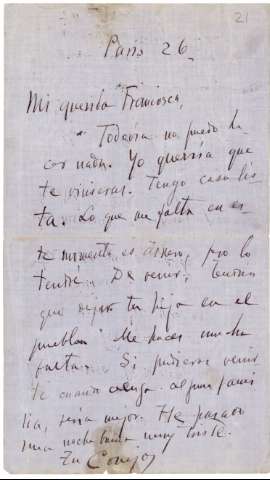 21
Paris 26
Mi querida Francisca,
Todavia no puedo ha
cer nada. Yo querria que
te vinieras. Tengo casa lis
ta. Lo que me falta en es
te momento es dinero, pero lo
tendré. De venir, tienes
que dejar tu hijo en el
pueblo. Me haces mucha
falta. Si pudieras venir
te cuando venga alguna fami
lia, seria mejor. He pasado
una noche buena muy triste.
Tu Conejo